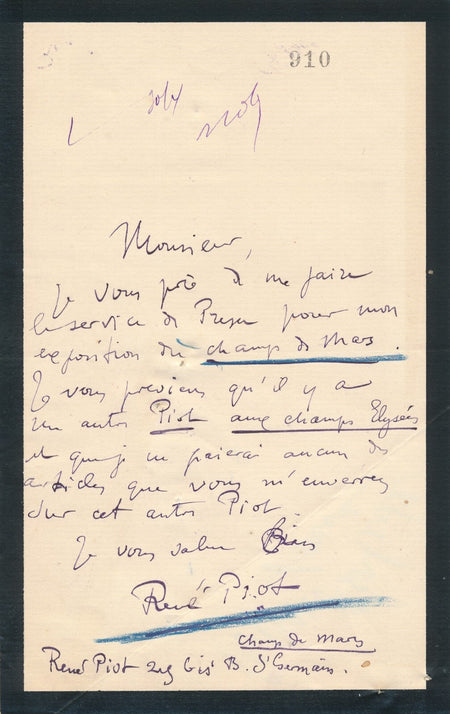 910
30/4
Monsieur,
Je vous prie de me faire
le service de Presse pour mon
exposition du champ de Mars.
Je vous previens qu'il y a
un autre Piot aux champs Elysées
et que je ne paierai aucun des
articles que vous m'enverrez
sur cet autre Piot
Je vous salue Bien
René Piot
Champ de Mars
René Piot 229 bis B. St Germain.